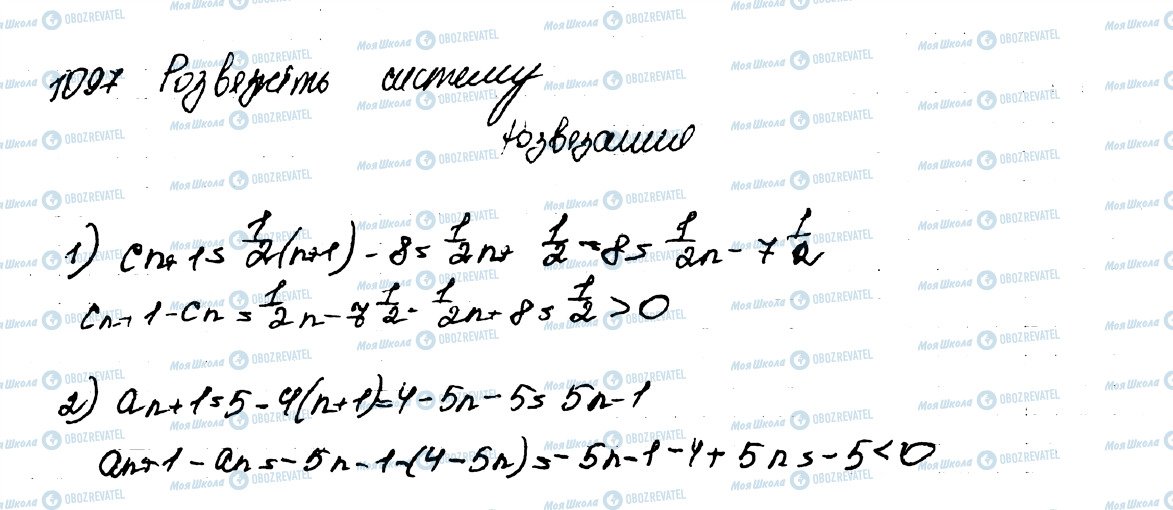 1097 Розвяжіть систему
розвязання
1) Cn+1 = 1/2(n+1) - 8 = 1/2n + 1/2 - 8 = 1/2n - 7 1/2
Cn+1 - Cn = 1/2n - 7 1/2 - 1/2n + 8 = 1/2 > 0
2) an+1 = 5 - 4(n+1) = 4 - 5n - 5 = 5n - 1
an+1 - an = -5n - 1 - (4 - 5n) = -5n - 1 - 4 + 5n = -5 < 0